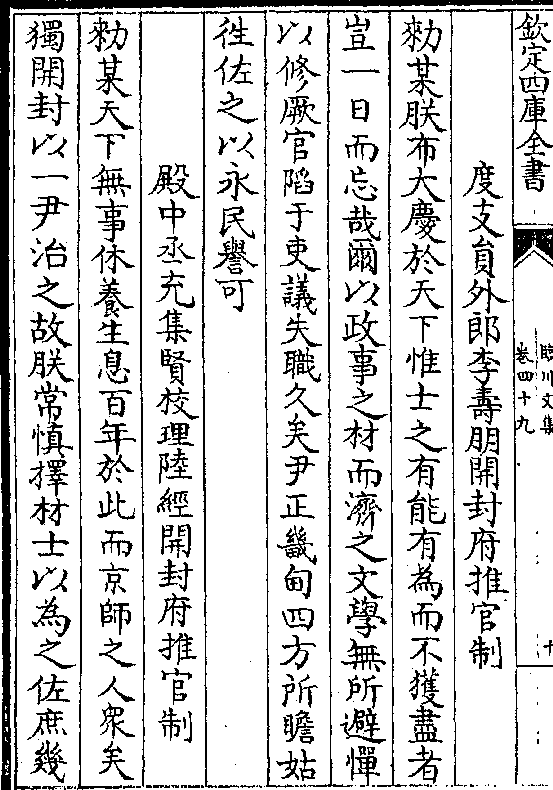 欽定四庫全書
臨川文集
卷四十九
十
度支員外郎李壽朋開封府推官制
勑某朕布大慶於天下惟士之有能有為而不獲盡者
豈一日而忘哉爾以政事之材而濟之文學無所避憚
以修厥官陷于吏議失職久矣尹正畿甸四方所瞻姑
徃佐之以永民譽可
殿中丞充集賢校理陸經開封府推官制
勑某天下無事休養生息百年於此而京師之人衆矣
獨開封以一尹治之故朕常慎擇材士以為之佐庶幾